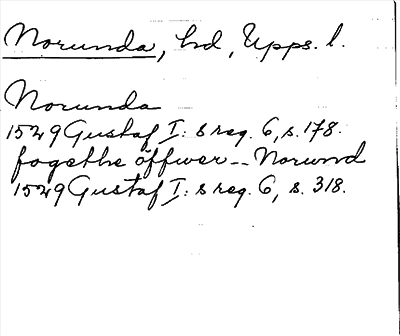 Norunda, hd, Upps. l.
Norunda
1529 Gustaf I: s reg. 6, s. 178.
fogethe öffwer -- Norwnd
1529 Gustaf I: s reg. 6, s. 318.